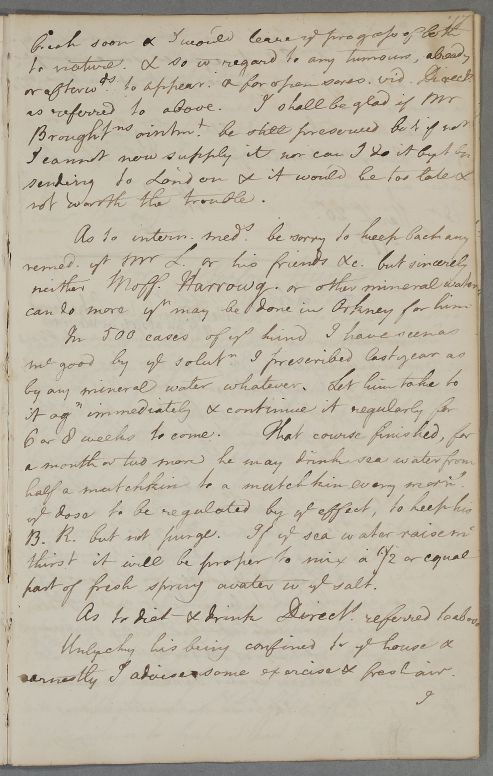 fresh soon & I would leave ye progress of both
to nature. & so w regard to any tumours, already
or afterwds to appear. or for open sores. vid. Directs
as referred to above. I shall be glad if Mr
Broughtns ointmt. be still preserved but if not
I cannot now supply it nor can I do it but by
sending to London & it would be too late &
not worth the trouble.
As to intern. meds. be sorry to keep back any
remed. yt Mr L. or his friends &c. but sincerely
neither Moff. Harrowg. or other mineral waters
can do more yn may be done in Orkney for him
In 500 cases of ys kind I have seen as
mc good by ye solutn I prescribed last year as
by any mineral water whatever. Let him take to
it agn immediately & continue it regularly for
6 or 8 weeks to come. That course finished, for
a month or two more he may drink sea water from
half a mutchkin to a mutchkin every morng.
ye dose to be regulated by ye effect, to keep his
B. R. but not purge. If ye sea water raise mc
thirst it will be proper to mix a 1/2 or equal
part of fresh spring water w ye salt.
As to diet & drink Directs. referred to above
Unlucky his being confined to ye house &
earnestly I advise some exercise & fresh air.
I